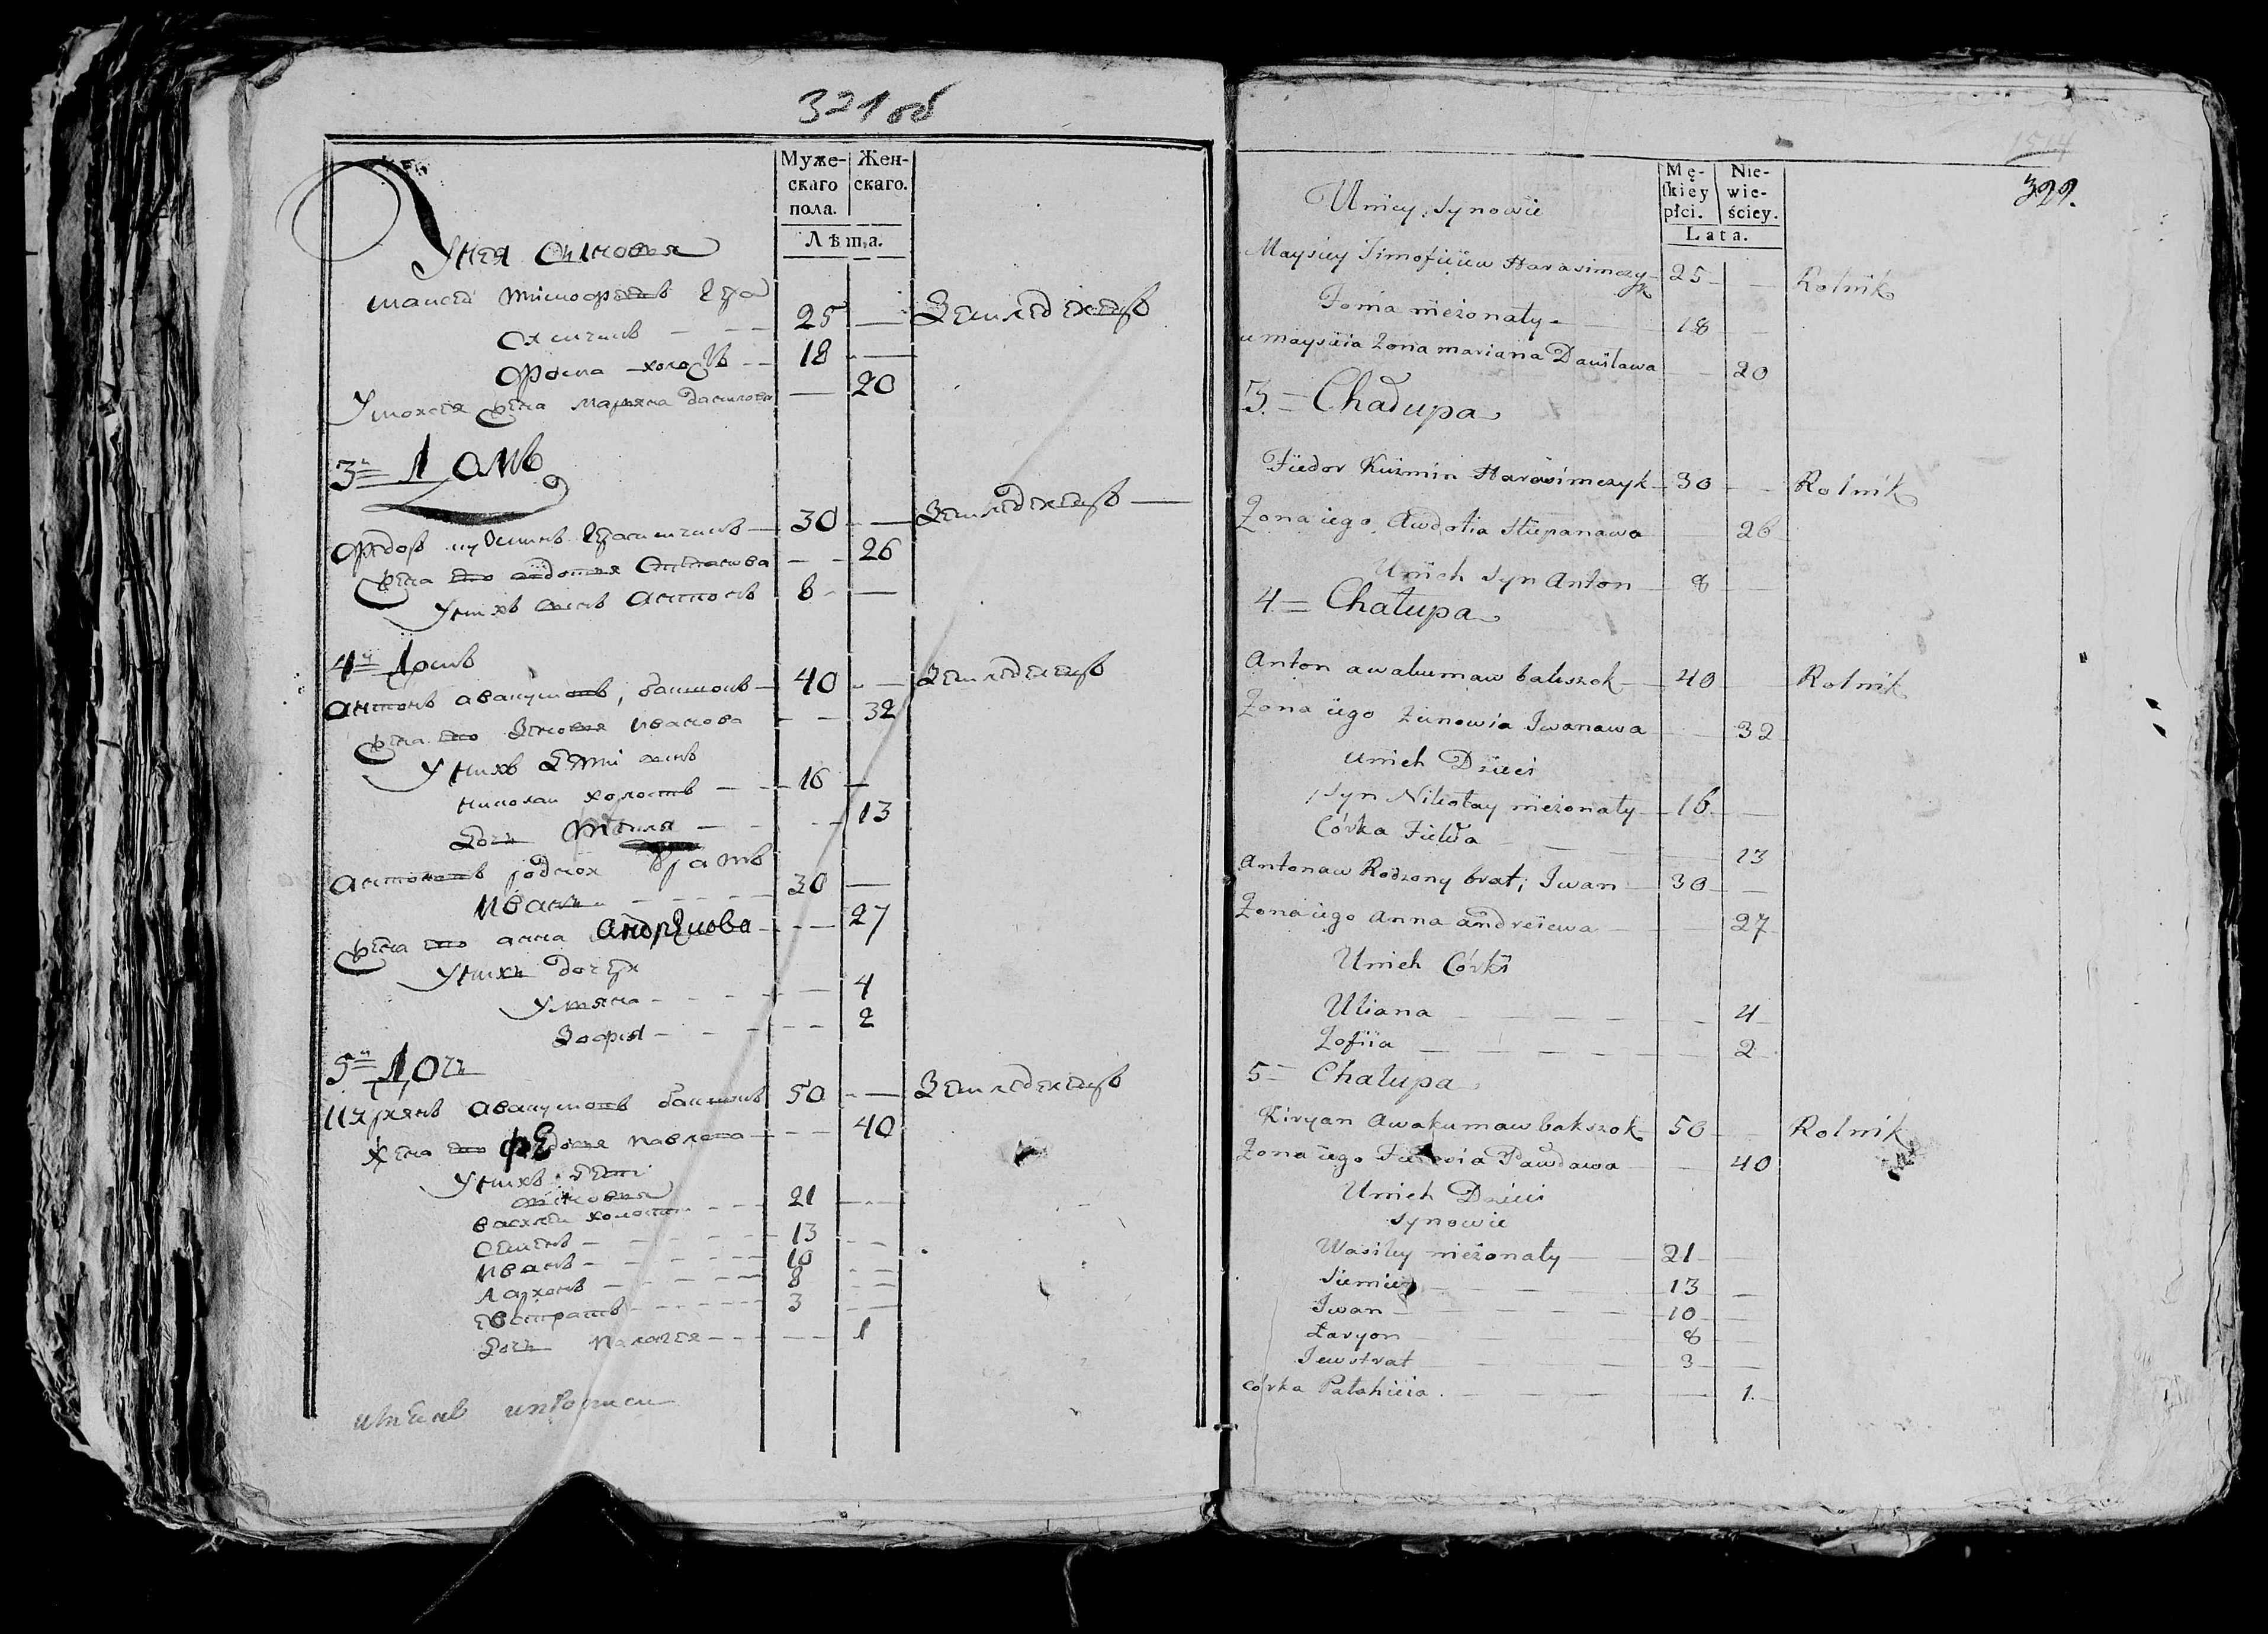 321 об
Муже-
скаго
пола.
Жен-
скаго.
Лѣта.
У нея сыновья
25 —
18 —
У моисея жена марьяна данилова — 20
3й домъ
30 — Земледелецъ —
жена его авдотья Степанова — 26
У нихъ сынъ антонъ 8 —
4й домъ
антонъ авакумовъ, бакшокъ — 40 — Земледелецъ
жена его Зеновья иванова — 32
У нихъ дети сынъ
николаи холостъ — 16 —
дочь — 13
антоновъ родной братъ
Иванъ — 30 —
жена его анна андреиова — 27
У нихъ дочери
Ульяна — 4
Зофия — 2
5й домъ
Кирьянъ авакумовъ бакшокъ 50 — Земледелецъ
жена его павлова — 40
У нихъ дети
сыновья
василеи холостъ — 21 —
семенъ — 13 —
иванъ — 10 —
ларионъ — 8 —
евстратъ — 3 —
дочь палагея — 1
1514
322.
Mę-
ſkiey
płci.
Nie-
wie-
ściey.
Lata.
Uniey synowie
Maysiey Timofiiew Harasimczy-
k 25 — Rolnik
Foma nieżonaty — 18 —
u maysieia żona mariana Daniława — 20
3 = Chałupa
Fiedor Kuźmin Harasimczyk — 30 — Rolnik
Żona iego Awdotia Stiepanawa 26
Unich syn Anton — 8 —
4 = Chałupa
Anton awakumaw bakszok — 40 — Rolnik
Żona iego Zinowia Iwanawa — 32
unich Dzieci
syn Nikołay nieżonaty — 16 —
Córka — 13
Antonaw Rodzony brat; Iwan — 30 —
Żona iego Anna andreiewa — 27
Unich Córki
Uliana — 4
Zofiia — 2
5 = Chałupa
Kiryan Awakumaw bakszok 50 — Rolnik
Żona iego Pawława — 40
Unich Dzieci
synowie
Wasiley nieżonaty — 21 —
Siemien — 13 —
Iwan — 10 —
Laryon — 8 —
Jewstrat — 3 —
córka Pałahieia — 1